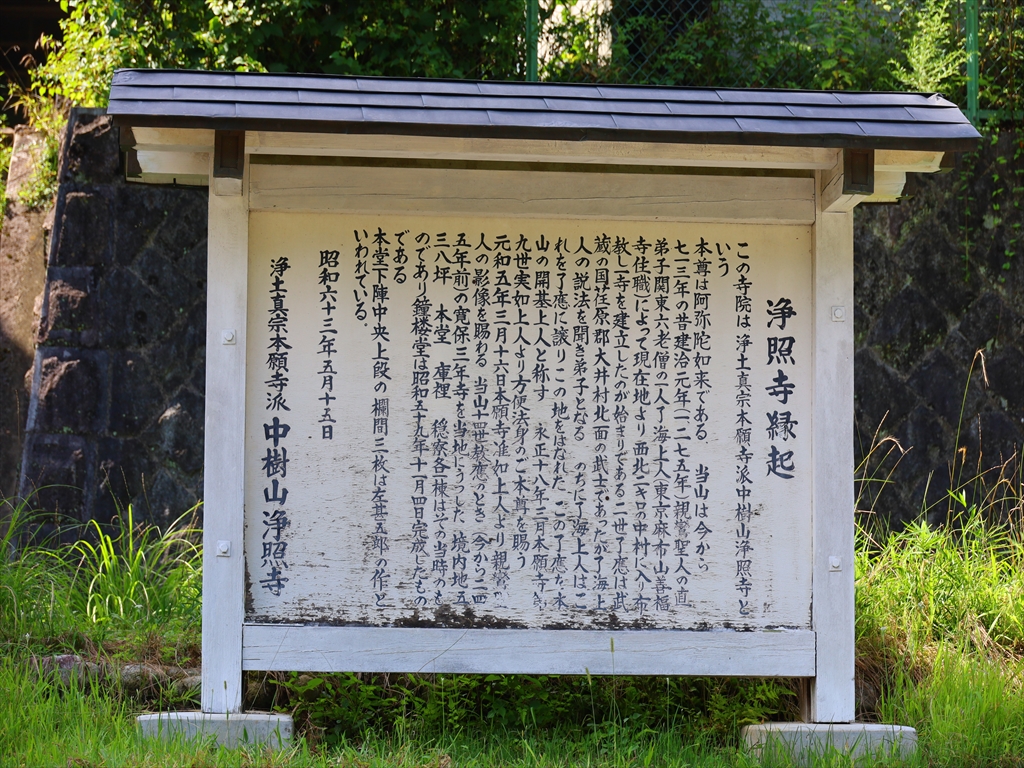 浄照寺縁起
この寺院は浄土真宗本願寺派中樹山浄照寺と
いう
本尊は阿弥陀如来である　当山は今から
七一三年の昔建治元年(一二七五年)親鸞聖人の直
弟子関東六老僧の一人了海上人(東京麻布山善福
寺住職)によって現在地より西北二キロの中村に入り布
教し一寺を建立したのが始まりである二世了應は武
蔵の国荏原郡大井村北面の武士であったが了海上
人の説法を聞き弟子となる　のちに了海上人はこ
れを了應に譲りこの地をはなれた　この了應を本
山の開基上人と称す　永正十八年三月本願寺
九世実如上人より方便法身のご本尊を賜う
元和五年三月十六日本願寺准如上人より親鸞
人の影像を賜わる　当山十四世教應のとき　今から二四
五年前)の寛保三年寺を当地にうつした　境内地五
三八坪　本堂　庫裡　鐘楼各一棟はその当時のも
のであり鐘楼堂は昭和五十九年十一月四日完成したもの
である
本堂下陣中央上段の欄間三枚は左甚五郎の作と
いわれている。
昭和六十三年五月十五日
浄土真宗本願寺派 中樹山浄照寺